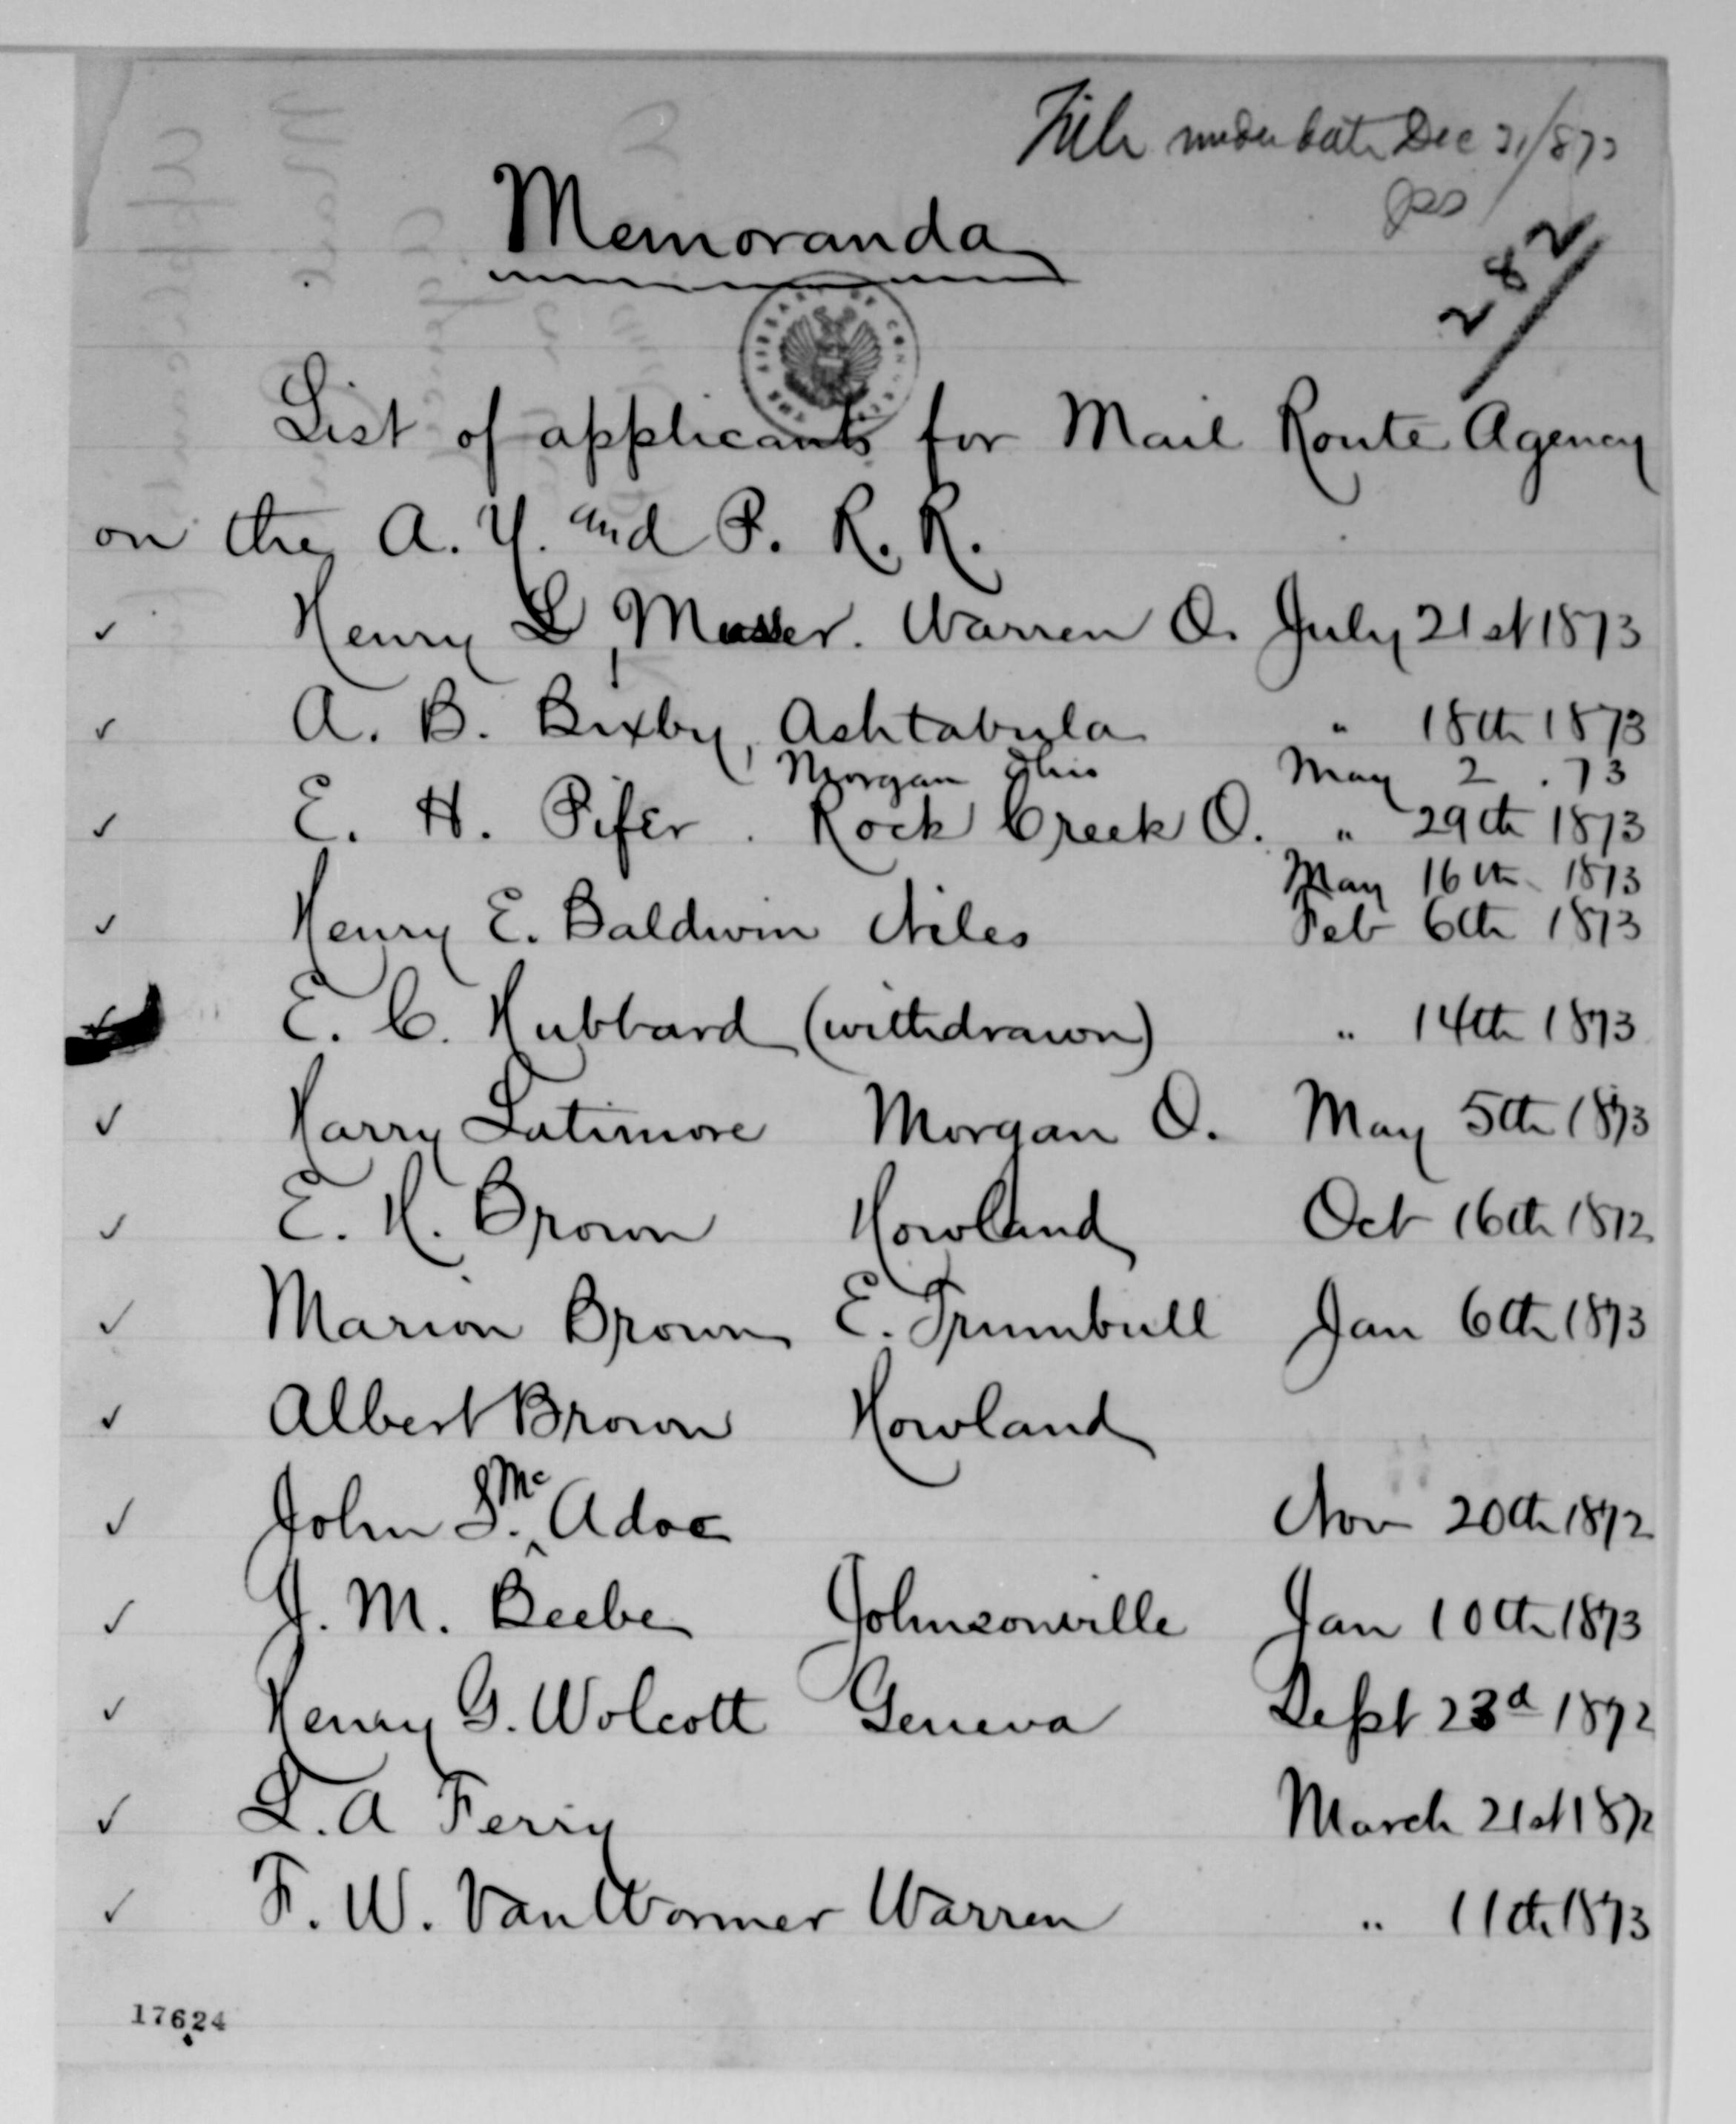 File under date Dec 31/873
282
Memoranda
THE LIBRARY OF CONGRESS
List of applicants for Mail Route Agency
on the A. Y. and P. R. R.
✓ Henry L, Musser. Warren O. July 21st 1873
✓ A. B. Bixby, Ashtabula " 18th 1873
Morgan Ohio May 2 . 73
✓ E. H. Pifer . Rock Creek O. " 29th 1873
May 16th 1873
✓ Henry E. Baldwin Niles Feb 6th 1873
E. C. Hubbard (withdrawn) " 14th 1873
✓ Harry Latimore Morgan O. May 5th 1873
✓ E. H. Brown Howland Oct 16th 1872
✓ Marion Brown E. Trumbull Jan 6th 1873
✓ Albert Brown Howland
✓ John S. Mc Adoo Nov 20th 1872
✓ J. M. Beebe Johnsonville Jan 10th 1873
✓ Henry G. Wolcott Geneva Sept 23d 1872
✓ L. A Ferry March 21st 1872
✓ F. W. Van Wormer Warren " 11th 1873
17624